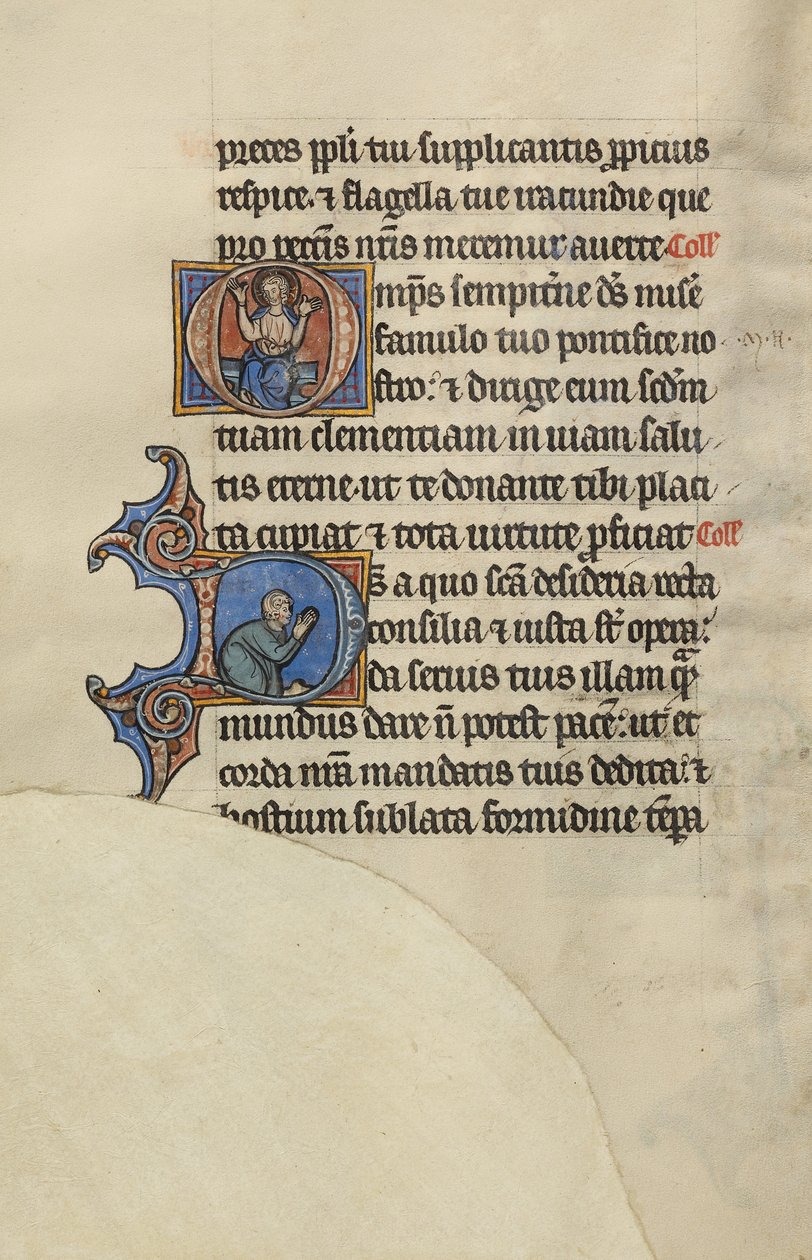 preces ppl̄i tui supplicantis ꝓpicius
respice. ⁊ flagella tue iracundie que
pro pecc̄is nr̄is meremur auerte. Coll̄
Omp̄s sempit̄ne ds̄ mise᷒re
famulo tuo pontifice no
stro: ⁊ dirige eum scd̄m
tuam clementiam in uiam salu
tis eterne. ut te donante tibi placi
ta cupiat ⁊ tota uirtute ꝑficiat Coll̄
Ds̄ a quo sc̄a desideria recta
consilia ⁊ iusta st̄ opera:
da seruis tuis illam qᷓm
mundus dare n̄ potest pacē: ut et
corda nr̄a mandatis tuis dedita: ⁊
hostium sublata formidine tēpa